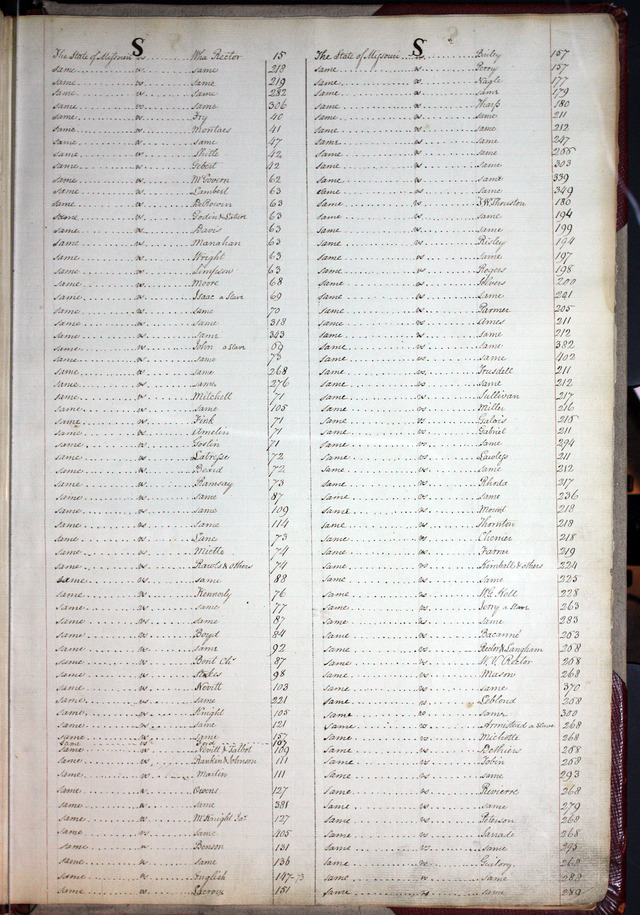 S
The State of Missouri vs Wm Rector 15
same vs same 218
same vs same 219
same vs same 282
same vs same 306
same vs Fry 40
same vs Montaes 41
same vs same 47
same vs 42
same vs 42
same vs McGovern 62
same vs Lambert 63
same vs 63
same vs 63
same vs Davis 63
same vs Manahan 63
same vs Wright 63
same vs Simpson 63
same vs Moore 68
same vs Isaac a Slave 69
same vs same 70
same vs same 318
same vs same 343
same vs John a Slave 69
same vs same 73
same vs same 268
same vs same 276
same vs Mitchell 71
same vs same 105
same vs Fink 71
same vs Amelin 71
same vs Goslin 71
same vs Latresse 72
same vs Beard 72
same vs Ramsay 73
same vs same 87
same vs same 109
same vs same 114
same vs Lane 73
same vs Miette 74
same vs Rawls & others 74
same vs same 88
same vs Kennerly 76
same vs same 77
same vs same 87
same vs Boyd 84
same vs same 92
same vs Bont Chs 87
same vs Stokes 98
same vs Nevitt 103
same vs same 221
same vs Knight 105
same vs same 121
same vs same 157
same vs
same vs Nevitt & Talbot 109
same vs Rankin & Johnson 111
same vs Martin 111
same vs Owens 127
same vs same 381
same vs McKnight Jas. 127
same vs same 405
same vs Benson 131
same vs same 136
same vs English 147-73
same vs Lacroix 151
S
The State of Missouri vs Bailey 157
same vs Perry 157
same vs Nagle 177
same vs same 179
same vs Tharp 180
same vs same 211
same vs same 212
same vs same 247
same vs same 255
same vs same 303
same vs same 339
same vs same 349
same vs J.W. Thruston 180
same vs same 194
same vs same 199
same vs Risley 194
same vs same 197
same vs Rogers 198
same vs 200
same vs same 241
same vs Parmer 205
same vs Ames 211
same vs same 212
same vs same 382
same vs same 402
same vs Truesdell 211
same vs same 212
same vs Sullivan 217
same vs Miller 216
same vs Galois 215
same vs Gabriel 211
same vs same 294
same vs Lawless 211
same vs same 212
same vs Rhoda 217
same vs same 236
same vs Mound 218
same vs Thornton 218
same vs Chenier 218
same vs Farner 219
same vs Kimball & others 224
same vs same 225
same vs 228
same vs Jerry a Slave 263
same vs same 283
same vs Bacanné 253
same vs Rector & Langham 258
same vs W.V. Rector 258
same vs Mason 268
same vs same 370
same vs Leblond 258
same vs same 300
same vs Armistead a Slave 268
same vs Michette 268
same vs Bothiers 258
same vs Tobin 258
same vs same 293
same vs Revierre 268
same vs same 279
same vs Peterson 268
same vs Sanade 268
same vs same 295
same vs Guilory 268
same vs same 282
same vs same 289